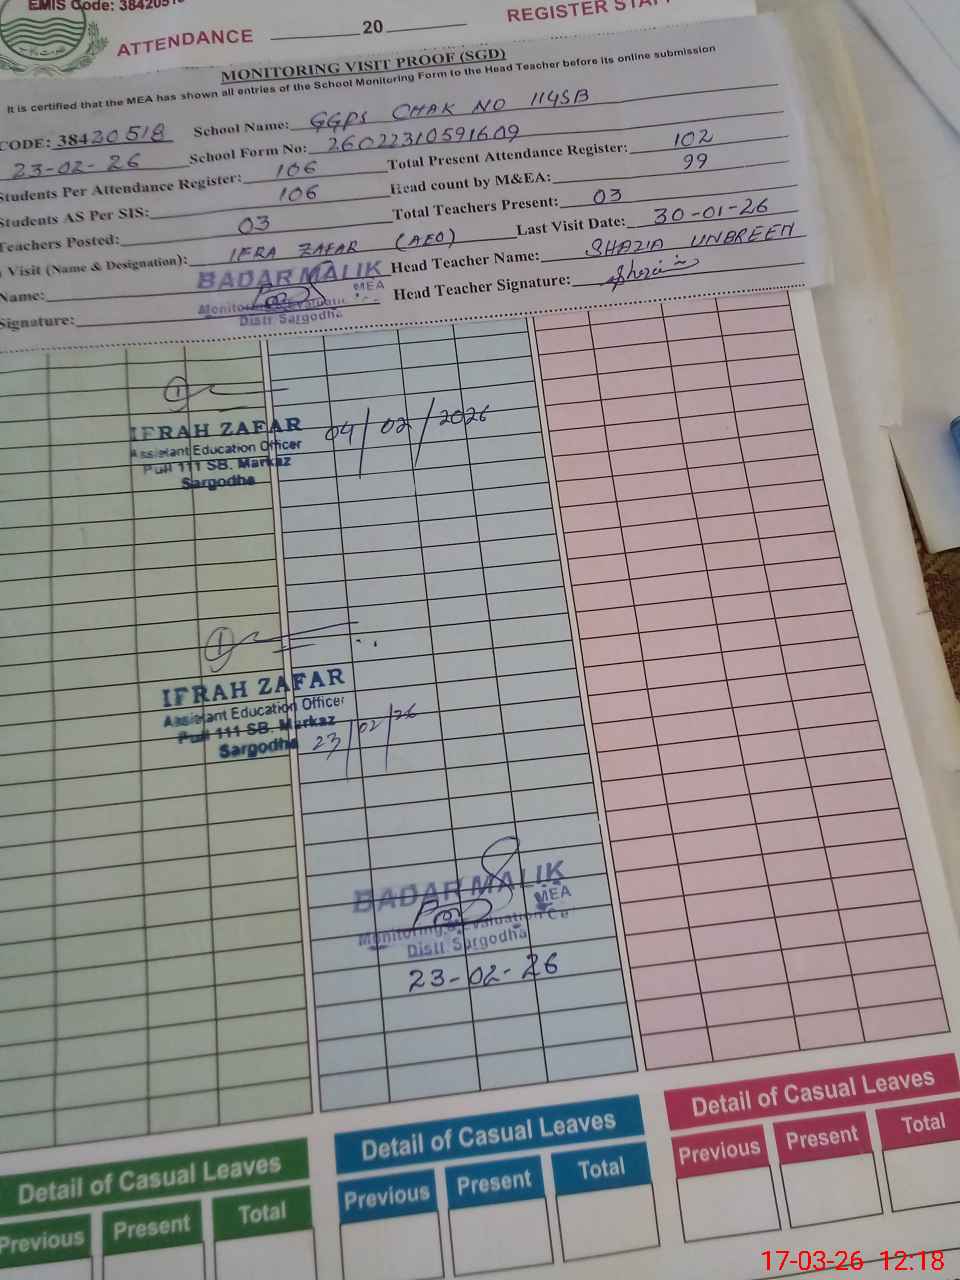 EMIS Code: 3842051
ATTENDANCE ________ 20 ________ REGISTER STAFF
MONITORING VISIT PROOF (SGD)
It is certified that the MEA has shown all entries of the School Monitoring Form to the Head Teacher before its online submission
CODE: 38420518 School Name: GGPS CHAK NO 114SB
23-02-26 School Form No: 26022310591609
Students Per Attendance Register: 106 Total Present Attendance Register: 102
Students AS Per SIS: 106 Head count by M&EA: 99
Teachers Posted: 03 Total Teachers Present: 03
Visit (Name & Designation): IFRA ZAFAR (AEO) Last Visit Date: 30-01-26
Name: BADAR MALIK Head Teacher Name: SHAZIA UNBREEN
MEA
Monitoring & Evaluation Ce
Signature: Head Teacher Signature:
Distt Sargodha
IFRAH ZAFAR
Assistant Education Officer
Pull 111 SB. Markaz
Sargodha
04/02/2026
IFRAH ZAFAR
Assistant Education Officer
Pull 111 SB. Markaz
Sargodha
23/02/26
BADAR MALIK
MEA
Monitoring & Evaluation Ce
Distt Sargodha
23-02-26
Detail of Casual Leaves Detail of Casual Leaves Detail of Casual Leaves
Previous Present Total Previous Present Total Previous Present Total
17-03-26 12:18